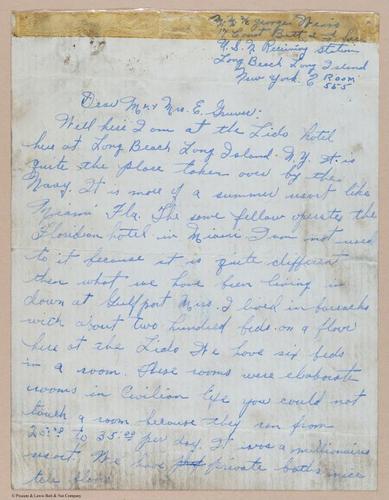 George Weiss
Court Batt 2nd
U.S.N Receiving Station
Long Beach Long Island
New York. C Room
555
Dear Mr & Mrs. E. Gruver:
Well here I am at the Lido hotel
here at Long Beach Long Island. N.Y. It is
quite the place taken over by the
Navy. It is more of a summer resort like
Miami Fla. The same fellow operates the
Floridian hotel in Miami I am not used
to it because it is quite different
then what we have been living in
down at Gulfport Miss. I lived in barracks
with about two hundred beds on a floor
here at the Lido We have six beds
in a room. These rooms were elaborate
rooms in Civilian life you could not
touch a room because they ran from
25.00 to 35.00 per day. It was a millionaires
resort. We have private baths nice
tile floor
© Profiles & Lewis-Bolt & Nut Company